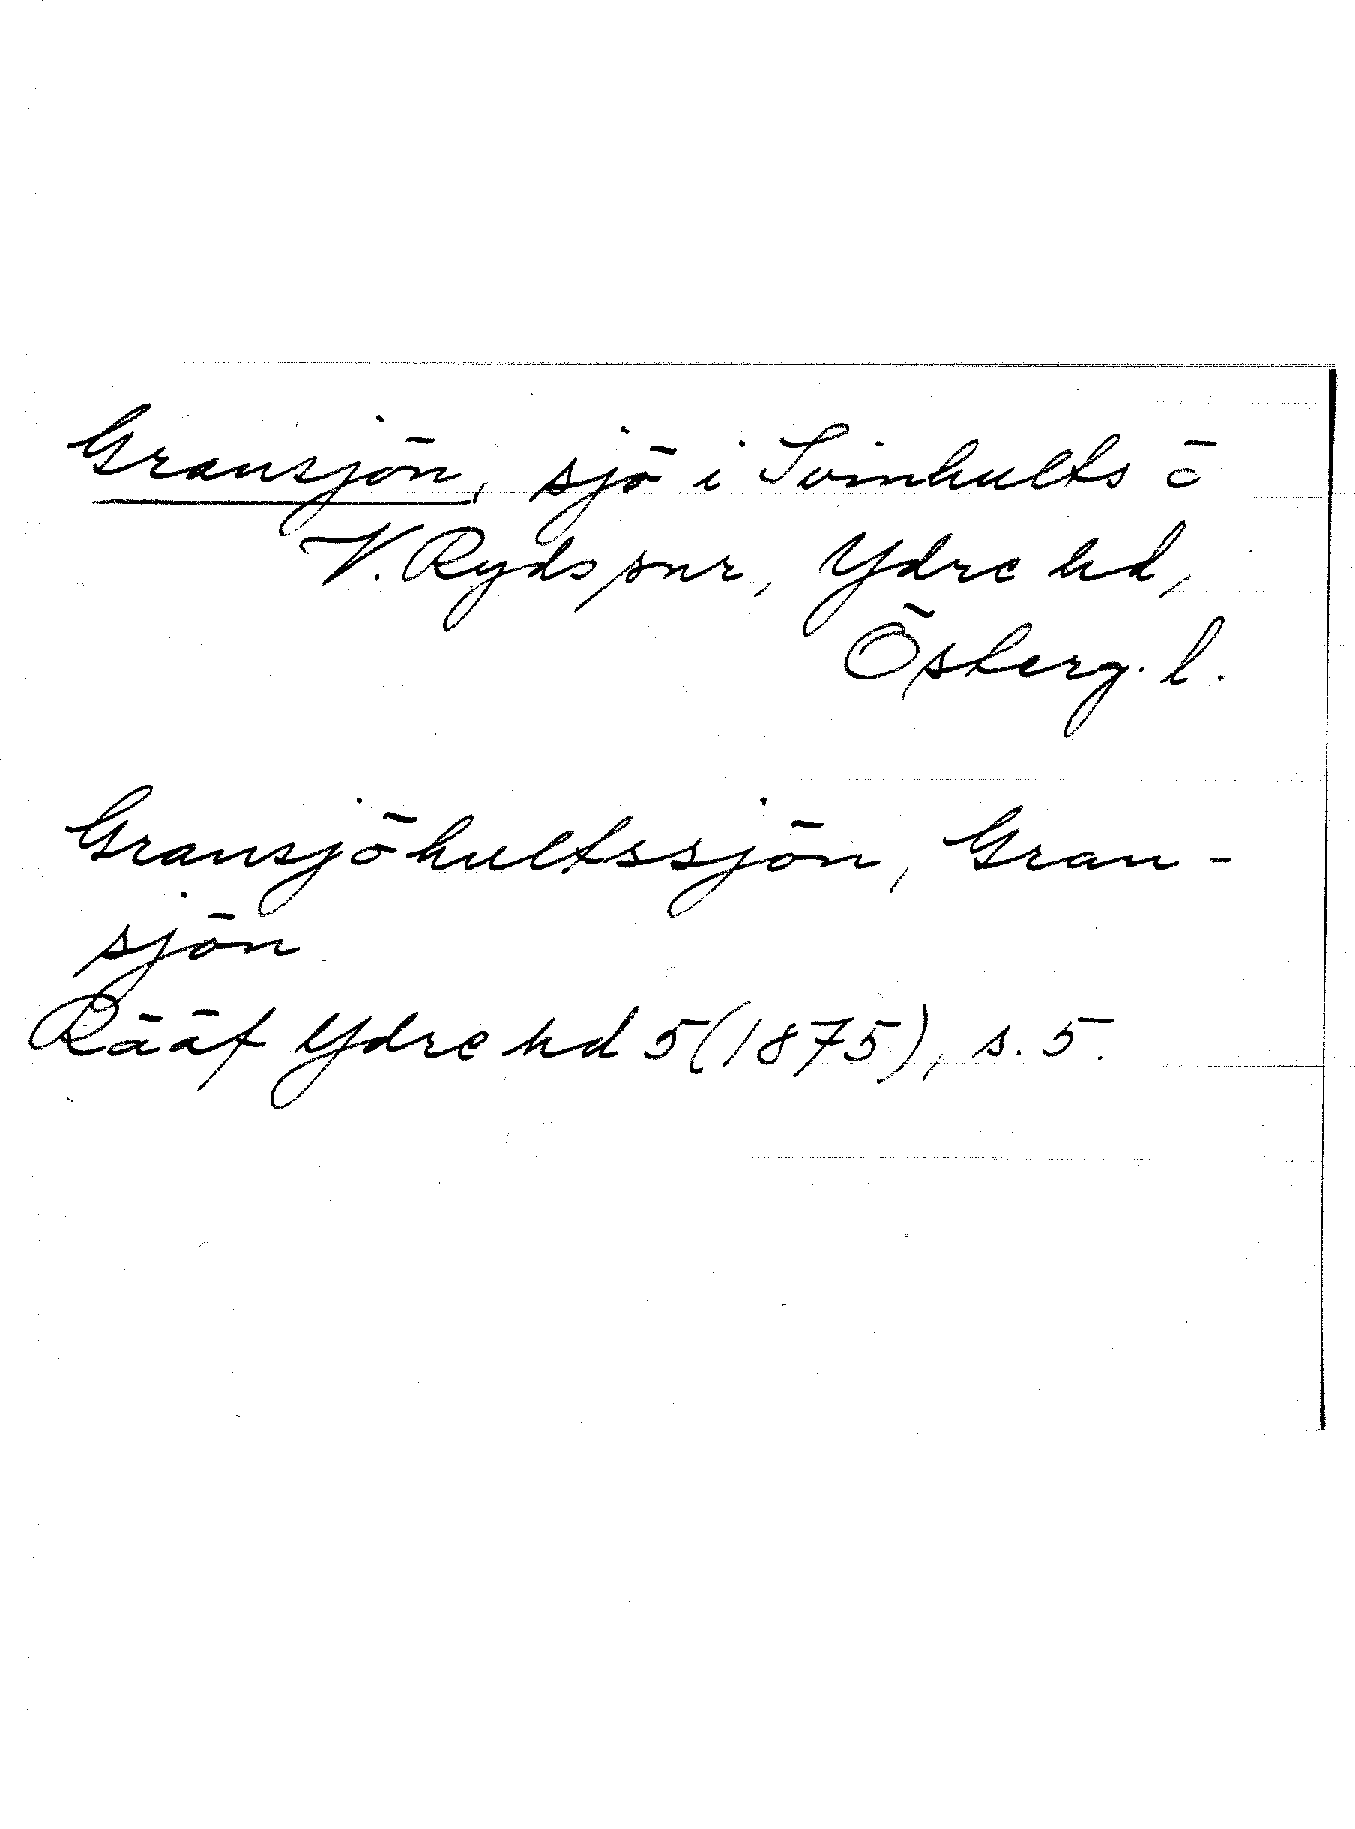 Gransjön, sjö i Svinhults o
V. Ryds snr, Ydre hd,
Österg. l.
Gransjöhultssjön, Gran-
sjön
Rääf Ydre hd 5 (1875), s. 5.